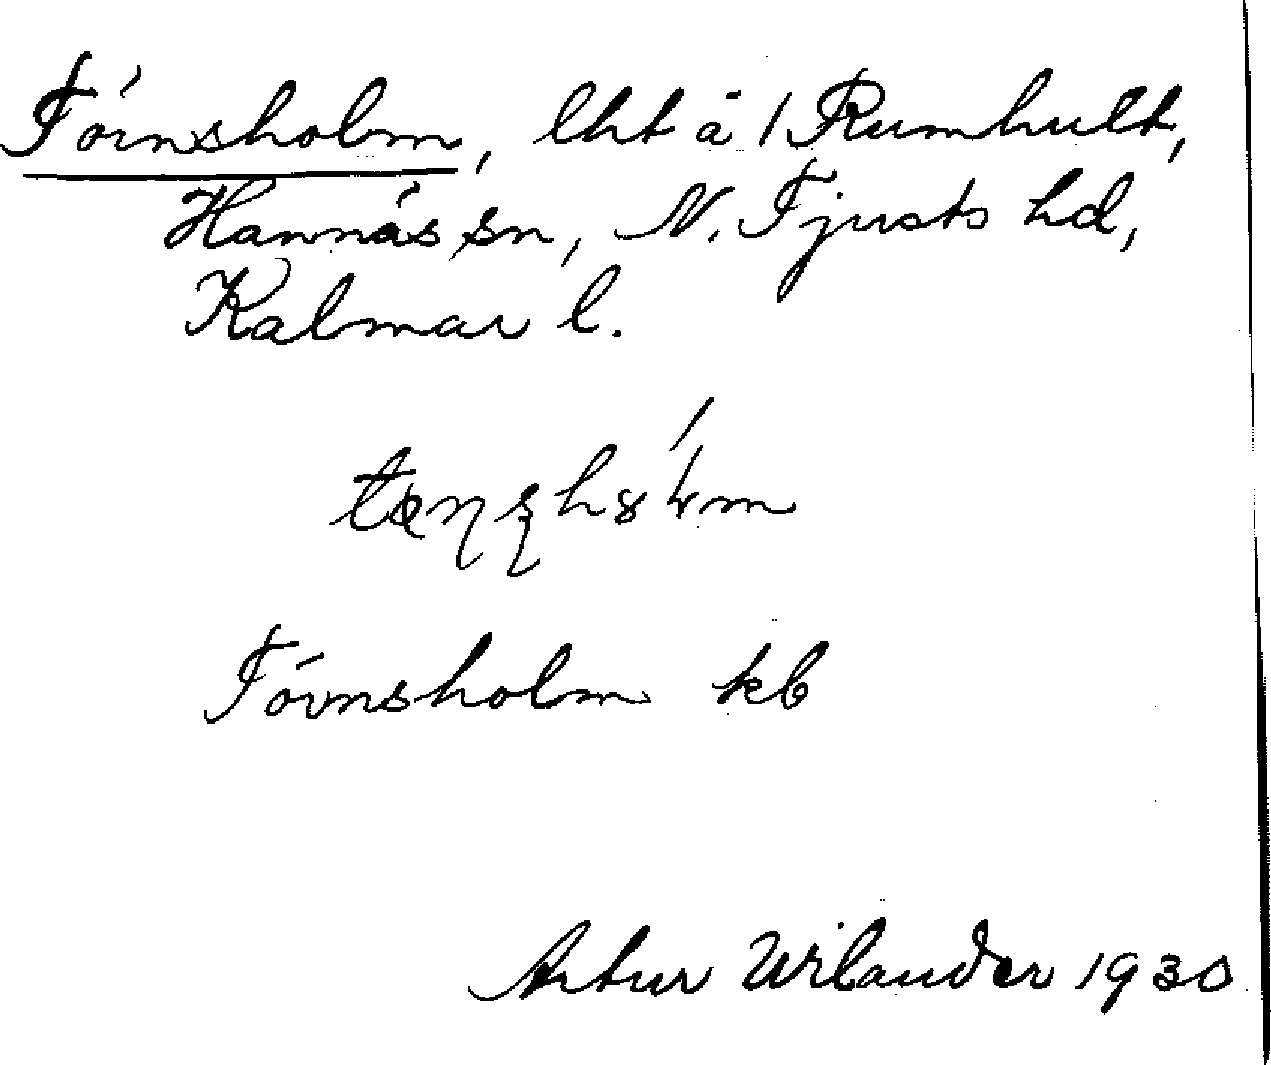 Törnsholm, lht å 1 Rumhult,
Hannäs sn, N. Tjusts hd,
Kalmar l.
Törnsholm kb
Artur Wilander 1930